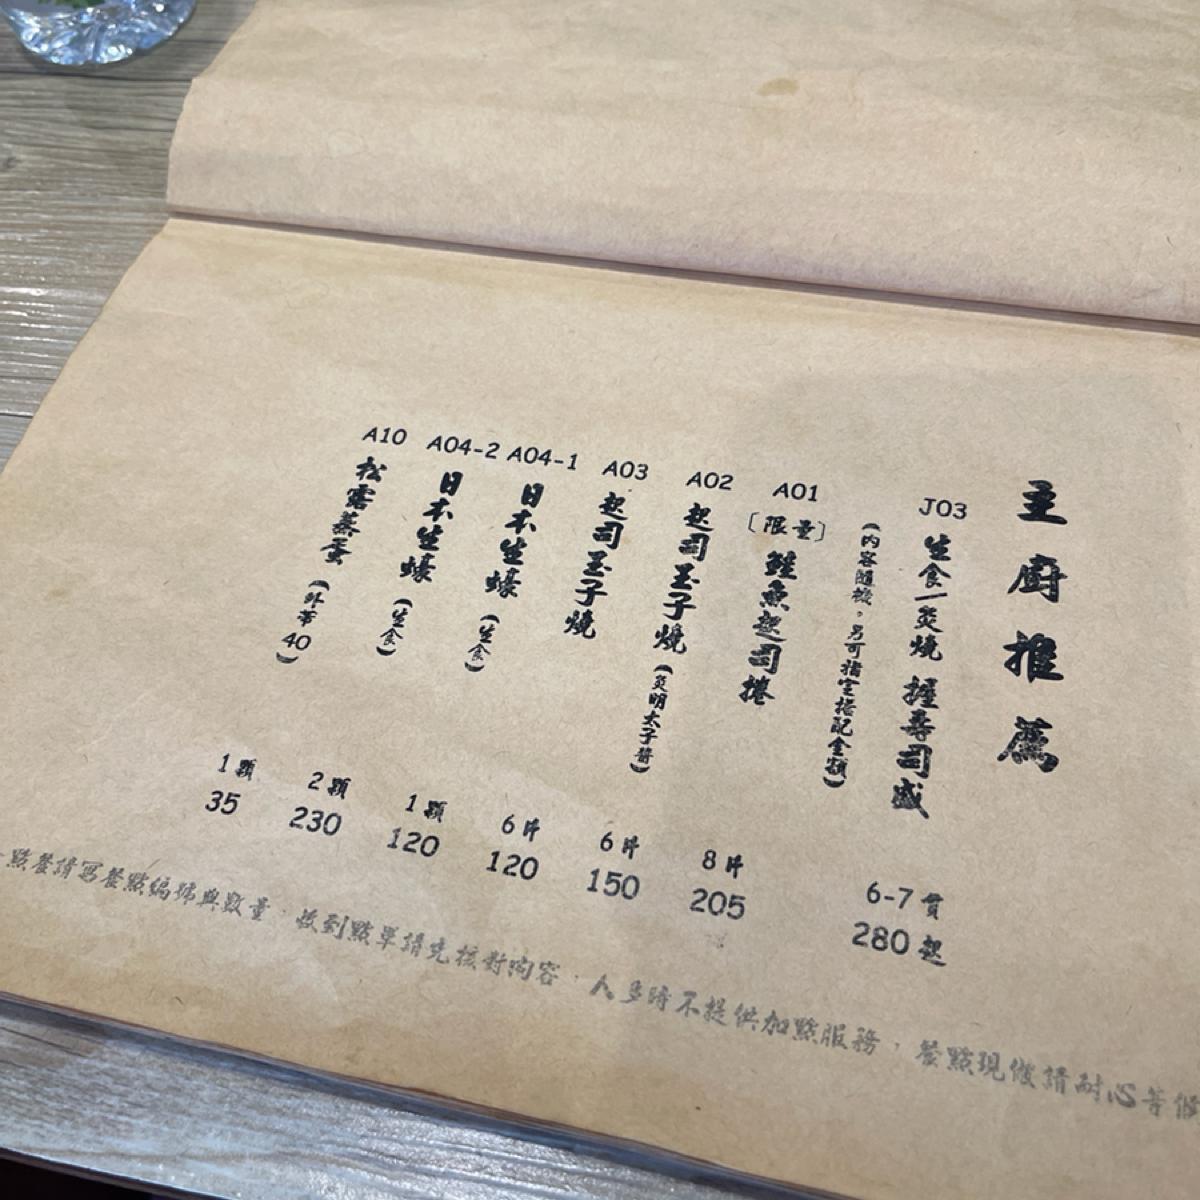 主廚推薦
J03 生食/炙燒 握壽司盛 6-7貫 280起
(內容隨機,另可指定搭配金額)
A01 〔限量〕鮭魚起司捲 8片 205
A02 起司玉子燒 (炙明太子醬) 6片 150
A03 起司玉子燒 6片 120
A04-1 日本生蠔 (生食) 1顆 120
A04-2 日本生蠔 (生食) 2顆 230
A10 松露蒸蛋 (外帶40) 1顆 35
點餐請寫餐點編號與數量·收到點單請先核對內容·人多時不提供加點服務,餐點現做請耐心等候